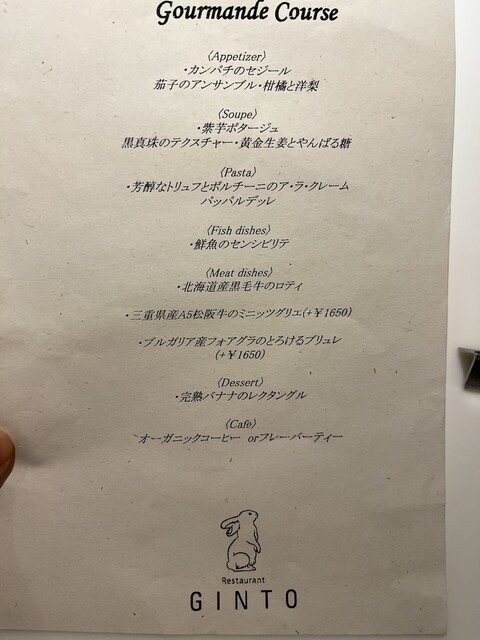 Gourmande Course
〈Appetizer〉
・カンパチのセジール
茄子のアンサンブル・柑橘と洋梨
〈Soupe〉
・紫芋ポタージュ
黒真珠のテクスチャー・黄金生姜とやんばる糖
〈Pasta〉
・芳醇なトリュフとポルチーニのア・ラ・クレーム
パッパルデッレ
〈Fish dishes〉
・鮮魚のセンシビリテ
〈Meat dishes〉
・北海道産黒毛牛のロティ
・三重県産A5松阪牛のミニッツグリエ(+￥1650)
・ブルガリア産フォアグラのとろけるブリュレ
(+￥1650)
〈Dessert〉
・完熟バナナのレクタングル
〈Cafe〉
オーガニックコーヒー orフレーバーティー
Restaurant
GINTO